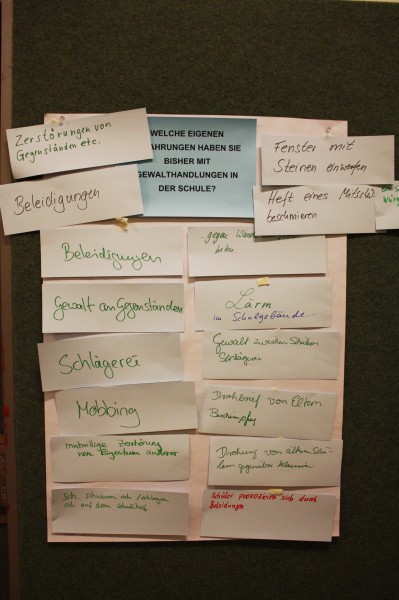 WELCHE EIGENEN
AHRUNGEN HABEN SIE
BISHER MIT
GEWALTHANDLUNGEN IN
DER SCHULE?
Zerstörungen von
Gegenständen etc.
Beleidigungen
Fenster mit
Steinen einwerfen
Heft eines Mitschü
beschmieren
Beleidigungen
Gewalt an Gegenständen
Schlägerei
Mobbing
mutwillige Zerstörung
von Eigentum anderer
Sch. schubsen sich / schlagen
sich auf dem Schulhof
gegen
Lärm
im Schulgebäude
Gewalt zwischen Schülern
Drohbrief von Eltern
Beschimpfung
Drohung von älteren Schü-
lern gegenüber kleineren
Schüler provozieren sich durch
Beleidigungen